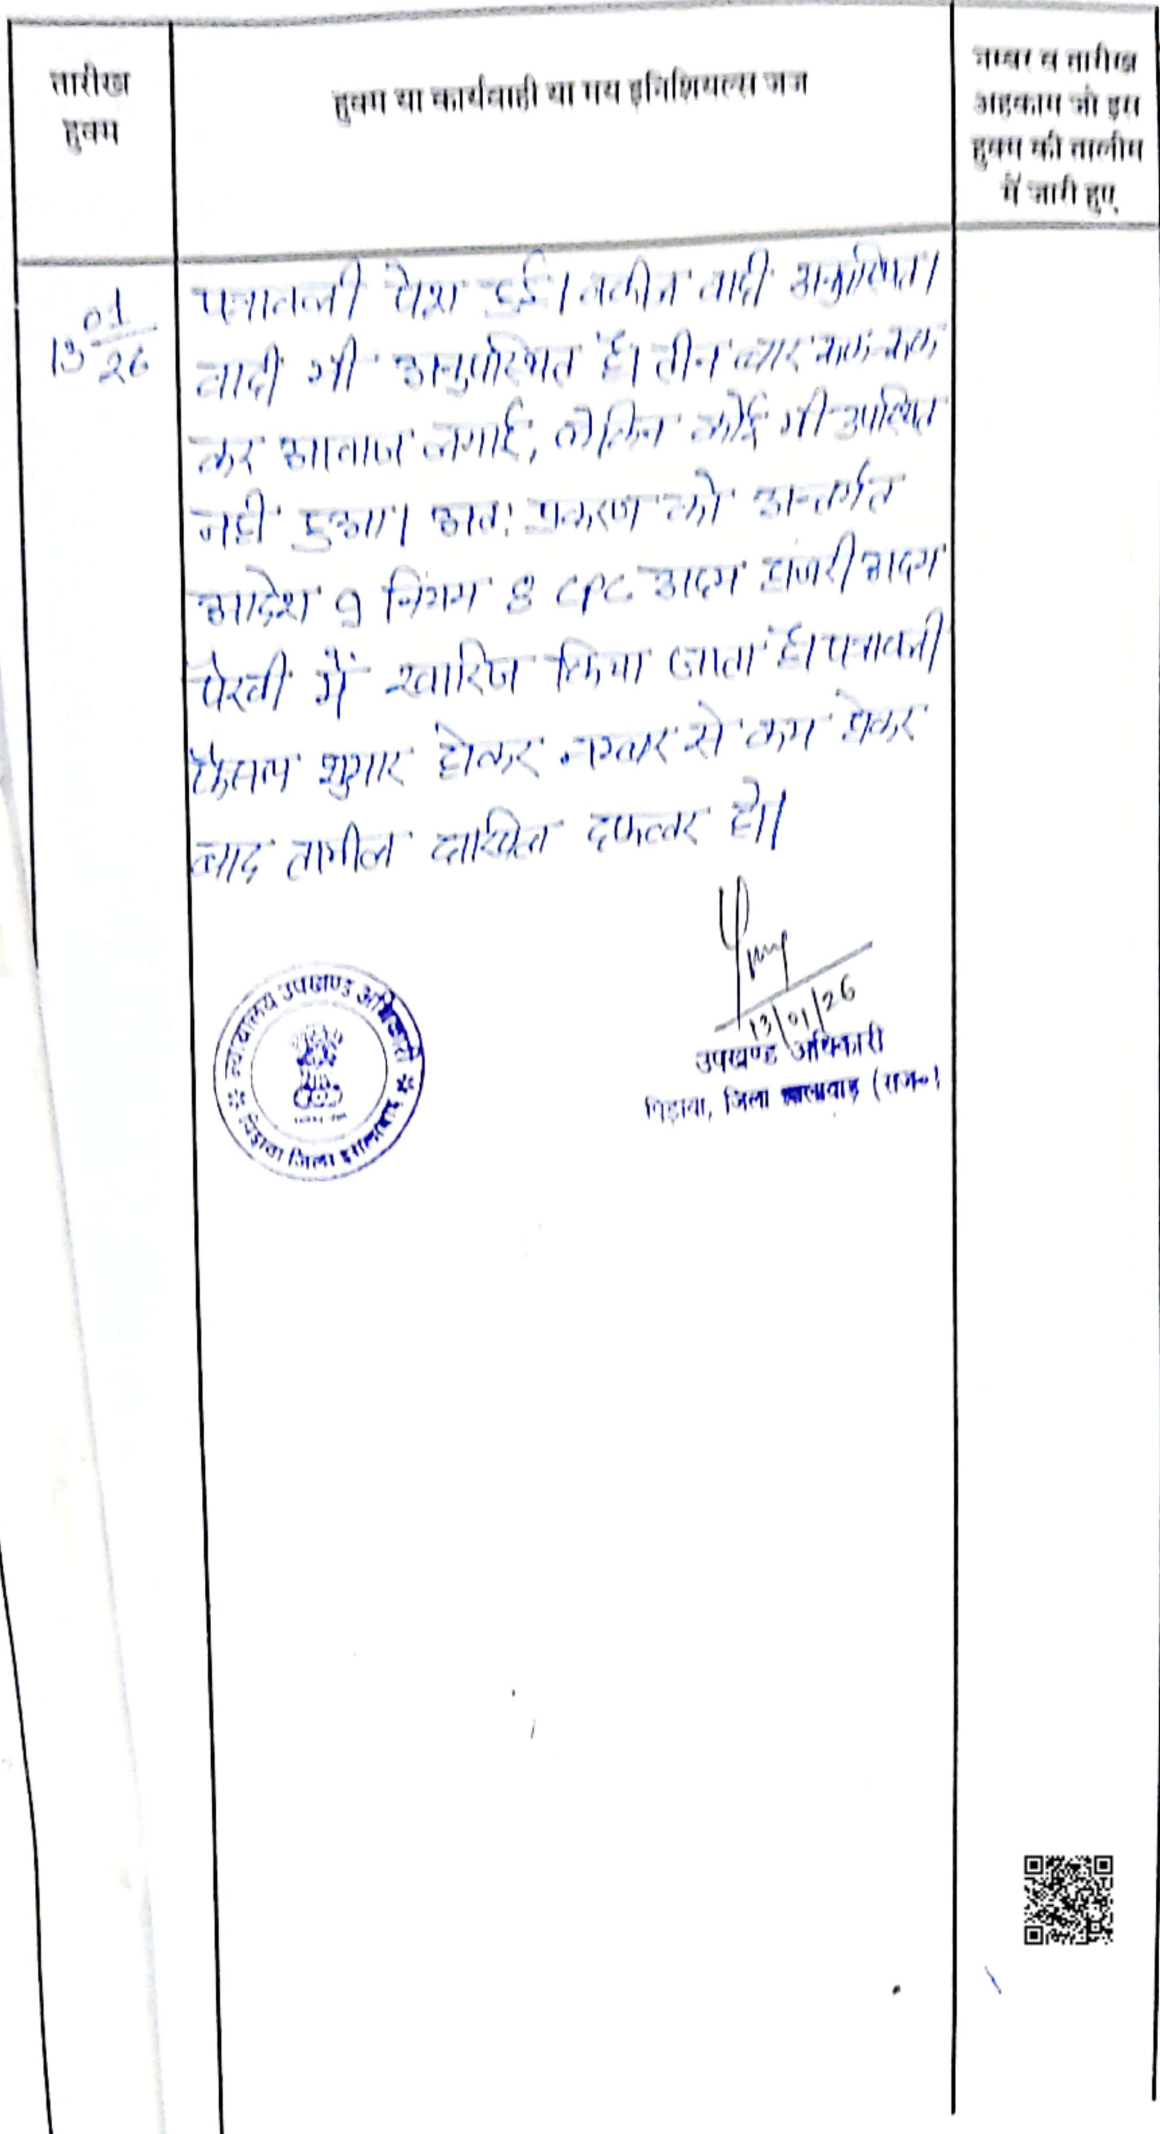 तारीख
हुक्म
हुक्म या कार्यवाही या मय इनिशियल्स जज
नम्बर व तारीख
अहकाम जो इस
हुक्म की तालीम
में जारी हुए
13 01/26
पत्रावली पेश हुई। वकील वादी अनुपस्थित।
वादी भी अनुपस्थित है। तीन बार रूक-रूक
कर आवाज लगाई, लेकिन कोई भी उपस्थित
नहीं हुआ। अतः प्रकरण को अन्तर्गत
आदेश 9 नियम 8 CPC अदम हाजरी अदम
पैरवी में खारिज किया जाता है। पत्रावली
फैसल शुमार होकर नम्बर से कम होकर
बाद तामील दाखिल दफ्तर हो।
13/01/26
उपखण्ड अधिकारी
पिड़ावा, जिला झालावाड़ (राज०)
न्यायालय उपखण्ड अधिकारी
पिड़ावा जिला झालावाड़